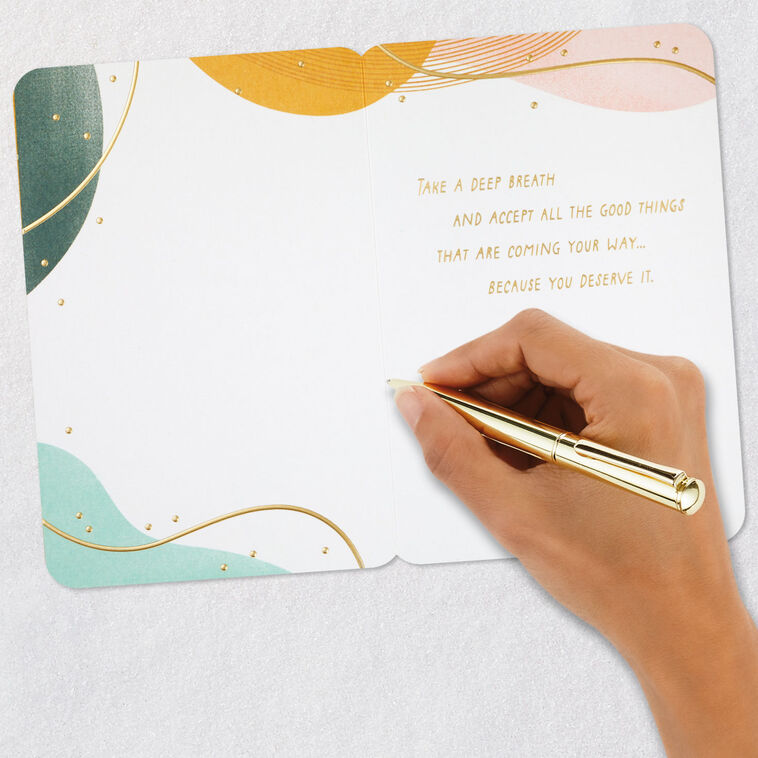 TAKE A DEEP BREATH
AND ACCEPT ALL THE GOOD THINGS
THAT ARE COMING YOUR WAY...
BECAUSE YOU DESERVE IT.